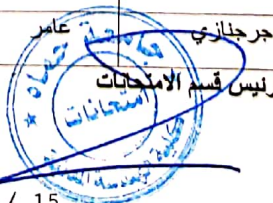 جرجنازي عامر
رئيس قسم الامتحانات
جامعة حماه
امتحانات
15 /